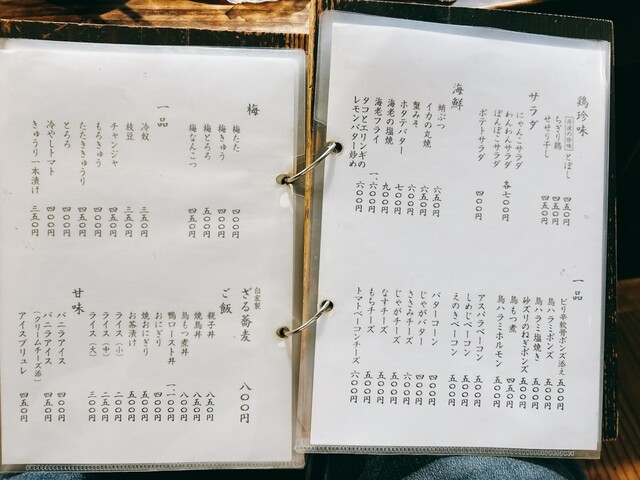 鶏珍味
とばし 四五〇円
ちぎり鶏 四五〇円
せせり干し 四五〇円
サラダ
にゃんこサラダ
わんわんサラダ 各七〇〇円
ぽんぽこサラダ
ポテトサラダ 四〇〇円
海鮮
鮪ぶつ 六五〇円
イカの丸焼 六五〇円
蟹みそ 六〇〇円
ホタテバター 七〇〇円
海老の塩焼 九〇〇円
海老フライ 一、〇〇〇円
タコとエリンギの
レモンバター炒め 六〇〇円
一品
ピリ辛軟骨ポンズ添え 五〇〇円
鳥ハラミポンズ 五五〇円
鳥ハラミ塩焼き 五五〇円
砂ズリのねぎポンズ 五〇〇円
鳥もつ煮 四五〇円
鳥ハラミホルモン 五五〇円
アスパラベーコン 五〇〇円
しめじベーコン 五〇〇円
えのきベーコン 五〇〇円
バターコーン 四〇〇円
じゃがバター 四〇〇円
ささみチーズ 六〇〇円
じゃがチーズ 五〇〇円
なすチーズ 五〇〇円
もちチーズ 五〇〇円
トマトベーコンチーズ 六〇〇円
梅
梅たた 四〇〇円
梅きゅう 四〇〇円
梅とろろ 五〇〇円
梅なんこつ 四五〇円
一品
冷奴 三五〇円
枝豆 三五〇円
チャンジャ 四五〇円
もろきゅう 四〇〇円
たたききゅうり 四〇〇円
とろろ 四〇〇円
冷やしトマト 四〇〇円
きゅうり一本漬け 三五〇円
自家製
ざる蕎麦 八〇〇円
ご飯
親子丼 八五〇円
焼鳥丼 八五〇円
鳥もつ煮丼 八〇〇円
鴨ロースト丼 一、一〇〇円
おにぎり 二〇〇円
焼おにぎり 五〇〇円
お茶漬け 五〇〇円
ライス(小) 二〇〇円
ライス(中) 二五〇円
ライス(大) 三〇〇円
甘味
バニラアイス 四〇〇円
バニラアイス
(クリームチーズ添) 四五〇円
アイスブリュレ 四五〇円